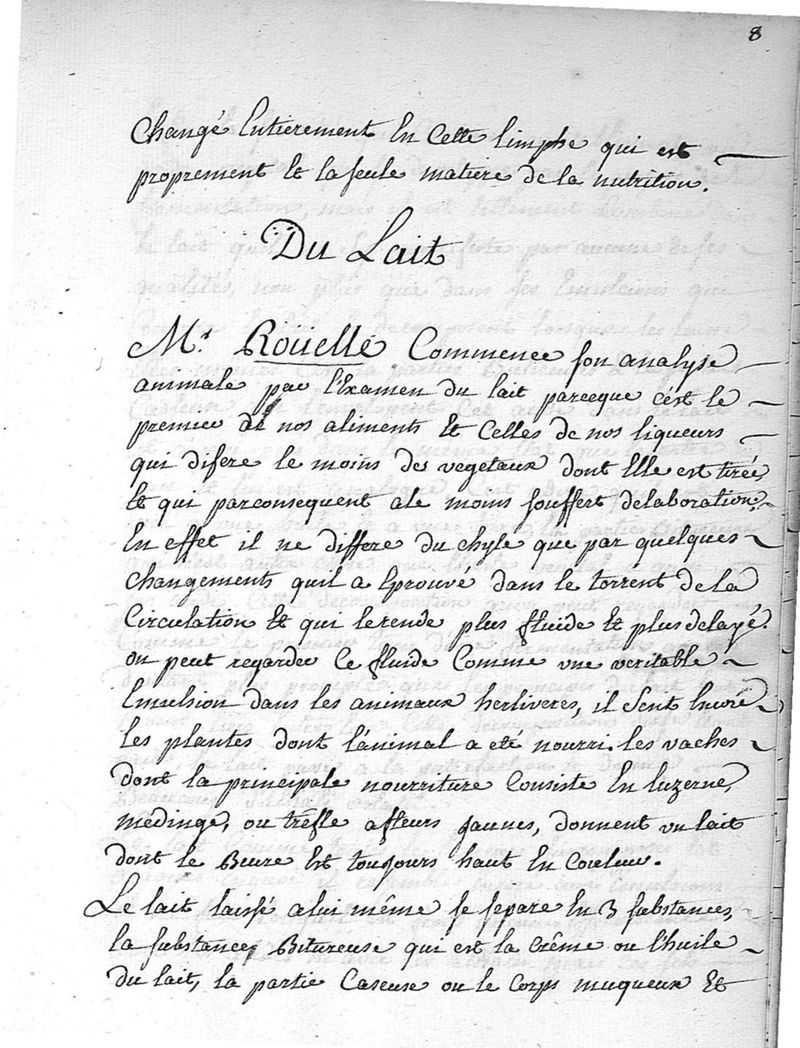 8
changé Entierement En cette limphe qui est
proprement Et la seule matiere de la nutrition.
Du Lait
Mr. Roüelle Commence son analyse
animale par l'Examen du lait parceque c'est le
premier de nos aliments Et Celles de nos liqueurs
qui difere le moins des vegetaux dont Elle est tirée,
Et qui parconsequent a le moins souffert delaboration.
En effet il ne differe du chyle que par quelques
changements quil a Eprouvé dans le torrent de la
Circulation Et qui le rende plus fluide Et plus delayé.
on peut regarder Ce fluide Comme une veritable
Emulsion dans les animaux herliveres, il sent Encore
les plantes dont l'animal a eté nourri. les vaches
dont la principale nourriture Consiste En luzerne,
medinge, ou trefle afleurs jaunes, donnent un lait
dont le Beure Est toujours haut En Couleur.
Le lait laissé a lui même se separe En 3 substances,
la substance Bitureuse qui est la Crême ou l'huile
du lait, la partie Caseuse ou le Corps muqueux Et